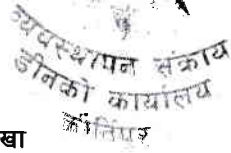 व्यवस्थापन संकाय
डीनको कार्यालय
कीर्तिपुर
खा